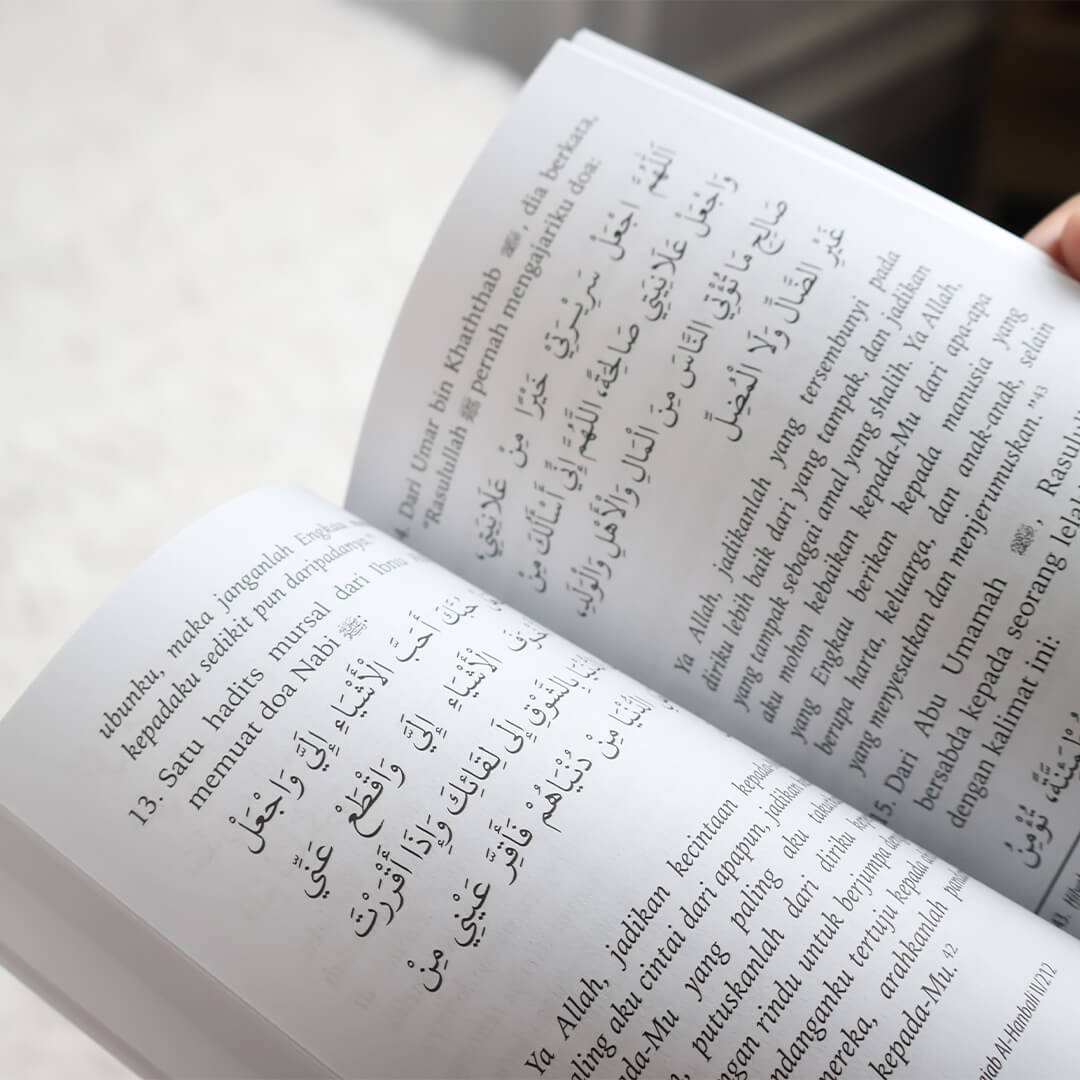 ubunku, maka janganlah Engkau
kepadaku sedikit pun daripadanya."
13. Satu hadits mursal dari Ibnu
memuat doa Nabi ﷺ.
حُبَّكَ أَحَبَّ الْأَشْيَاءِ إِلَيَّ وَاجْعَلْ
الْأَشْيَاءِ إِلَيَّ وَاقْطَعْ عَنِّي
بِالشَّوْقِ إِلَى لِقَائِكَ وَإِذَا أَقْرَرْتَ
الدُّنْيَا مِنْ دُنْيَاهُمْ فَأَقِرَّ عَيْنِي مِنْ
Ya Allah, jadikan kecintaan kepada-
aling aku cintai dari apapun, jadikan
ada-Mu yang paling aku
putuskanlah dari diriku
ngan rindu untuk berjumpa
ndanganku tertuju kepada
mereka, arahkanlah
kepada-Mu. 42
ajab Al-Hanbali
4. Dari Umar bin Khaththab, dia berkata,
"Rasulullah ﷺ pernah mengajariku doa:
اَللّٰهُمَّ اجْعَلْ سَرِيْرَتِيْ خَيْرًا مِنْ عَلَانِيَتِيْ،
وَاجْعَلْ عَلَانِيَتِي صَالِحَةً، اللَّهُمَّ إِنِّي أَسْأَلُكَ مِن
صَالِحِ مَا تُؤْتِي النَّاسَ مِنَ الْمَالِ وَالْأَهْلِ وَالْوَلَدِ،
غَيْرِ الضَّالِّ وَلَا الْمُضِلِّ
Ya Allah, jadikanlah yang tersembunyi pada
diriku lebih baik dari yang tampak, dan jadikan
yang tampak sebagai amal yang shalih. Ya Allah,
aku mohon kebaikan kepada-Mu dari apa-apa
yang Engkau berikan kepada manusia yang
berupa harta, keluarga, dan anak-anak, selain
yang menyesatkan dan menjerumuskan."43
15. Dari Abu Umamah, Rasulu
bersabda kepada seorang lela
dengan kalimat ini:
تُؤْمِنُ